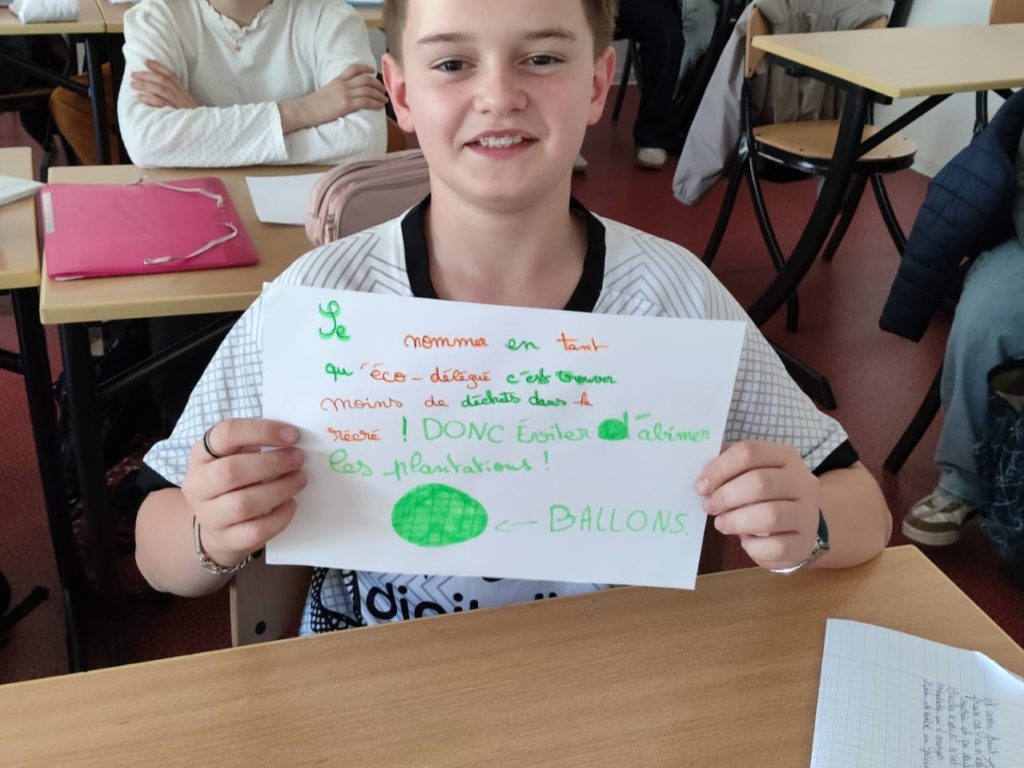 Se nommer en tant
qu'éco-délégué c'est trouver
moins de déchets dans la
récré ! DONC Éviter d'abimer
les plantations !
<- BALLONS.